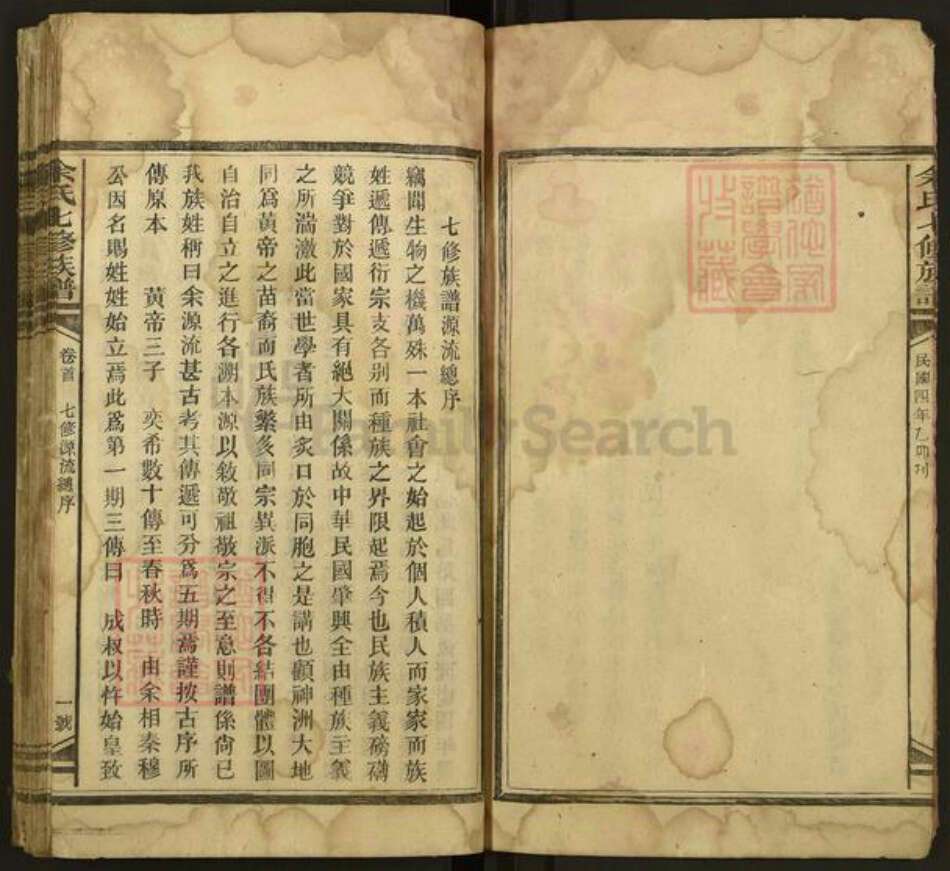 余氏七修族譜
民國四年乙卯刊
遺仙家譜學會收藏
七修族譜源流總序
竊聞生物之機萬殊一本社會之始起於個人積人而家家而族
姓遞傳遞衍宗支各别而種族之界限起焉今也民族主義磅礴
競爭對於國家具有絕大關係故中華民國肇興全由種族主義
之所湍激此當世學者所由炙口於同胞之是講也顧神洲大地
同爲黃帝之苗裔而氏族繁多同宗異派不得不各結團體以圖
自治自立之進行各溯本源以敘敬祖敬宗之至意則譜係尙已
我族姓稱曰余源流甚古考其傳遞可分爲五期焉謹按古序所
傳原本 黃帝三子 奕希數十傳至春秋時 由余相秦穆
公因名賜姓姓始立焉此爲第一期三傳曰 成叔以忤始皇致
余氏七修族譜
卷首 七修源流總序
一號
FamilySearch